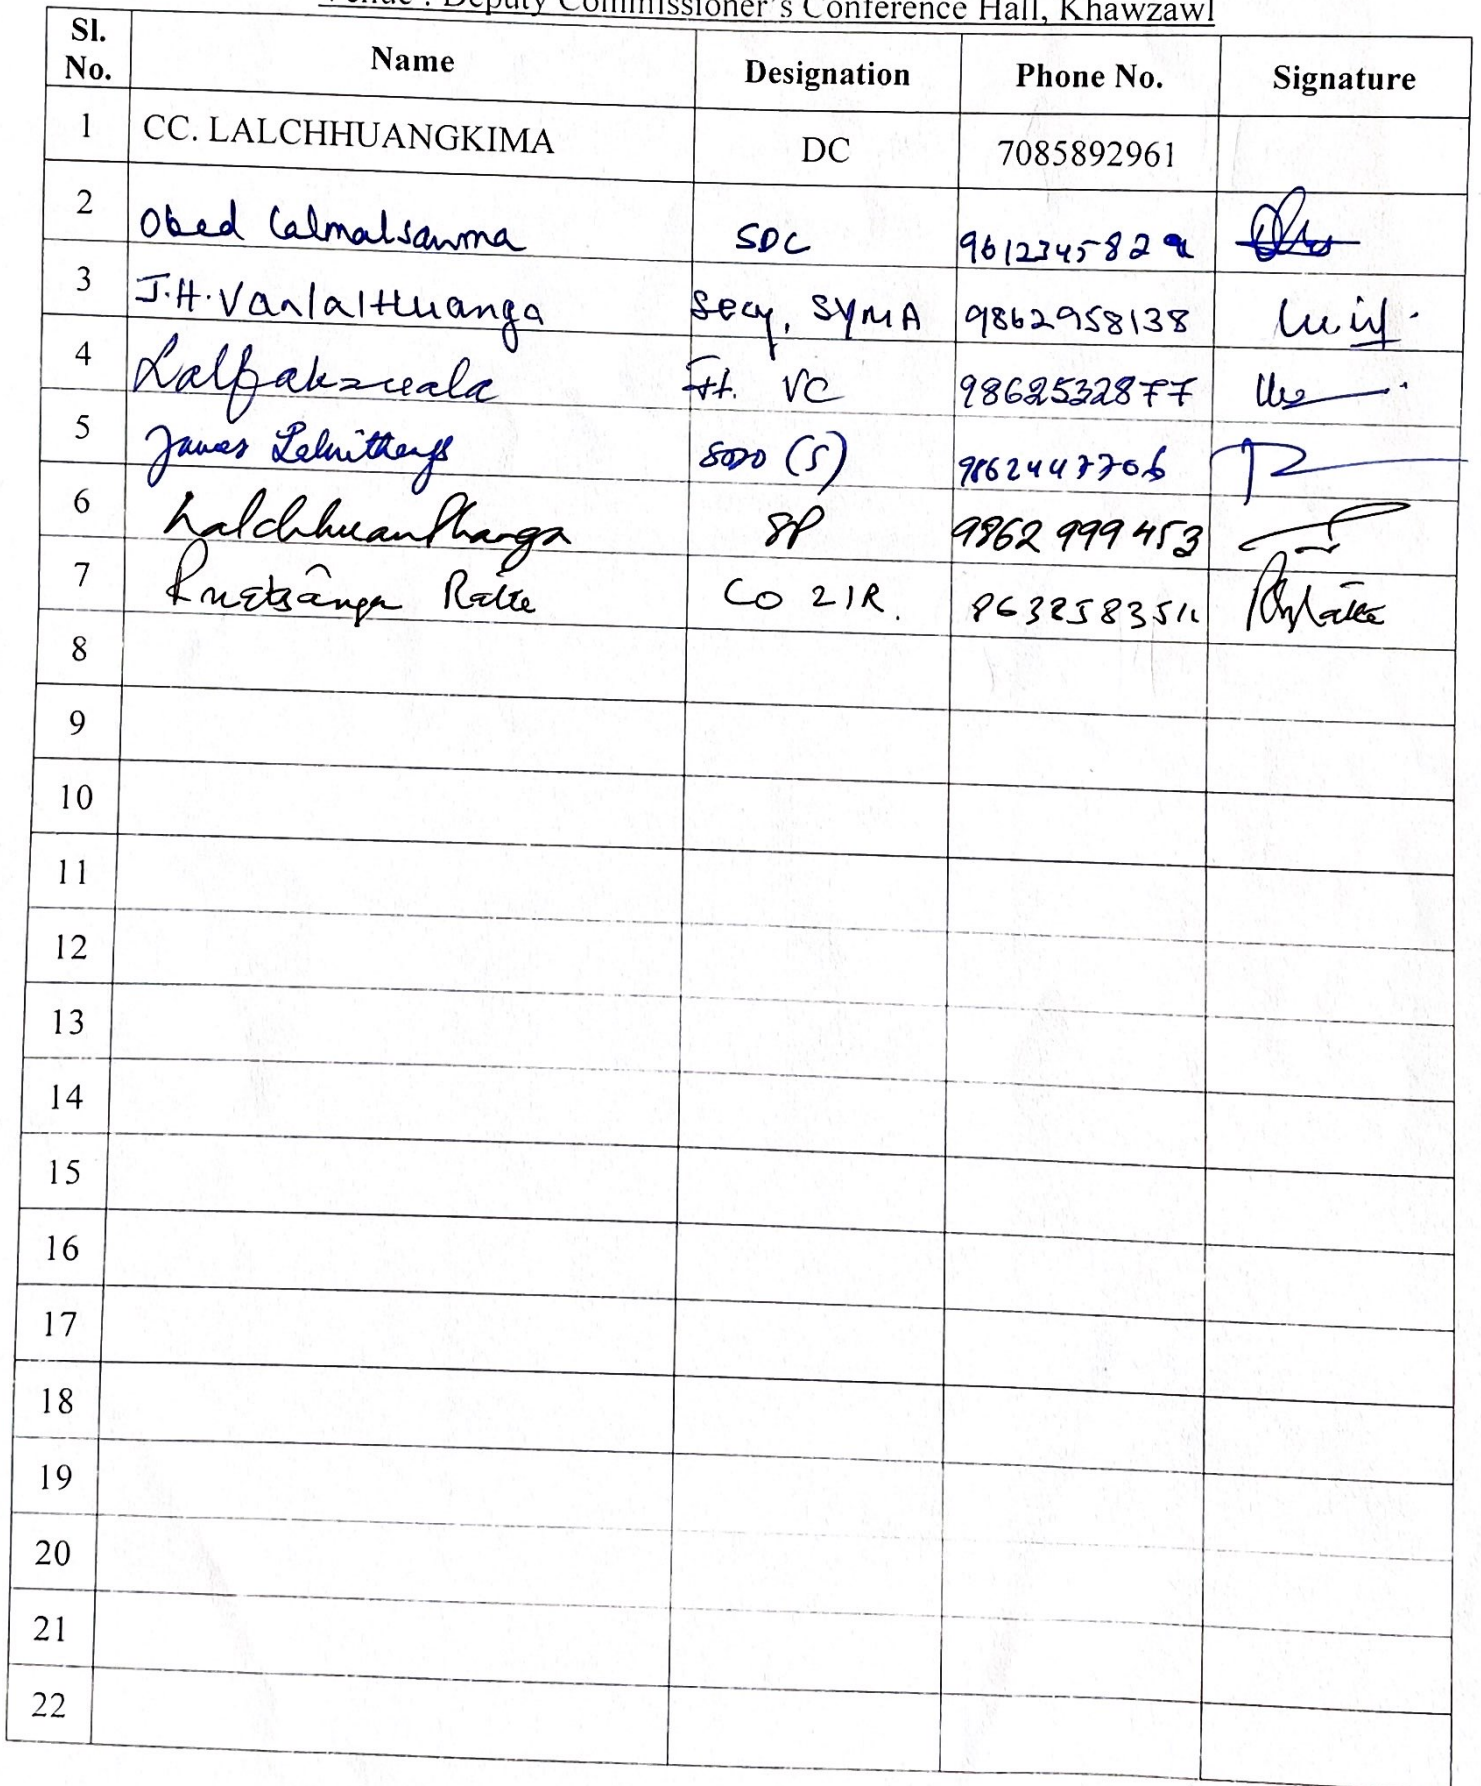 Venue : Deputy Commissioner's Conference Hall, Khawzawl
Sl. No. Name Designation Phone No. Signature
1 CC. LALCHHUANGKIMA DC 7085892961
2 Obed Lalmalsawma SDC 961234582
3 J.H. VanlalHuanga Secy, SYMA 9862958138
4 Lalfakzuala Jt. VC 9862532877
5 James SDO (S) 9862447706
6 Lalchhuanthanga SP 9862 999 453
7 Ralte CO 2IR.
8
9
10
11
12
13
14
15
16
17
18
19
20
21
22